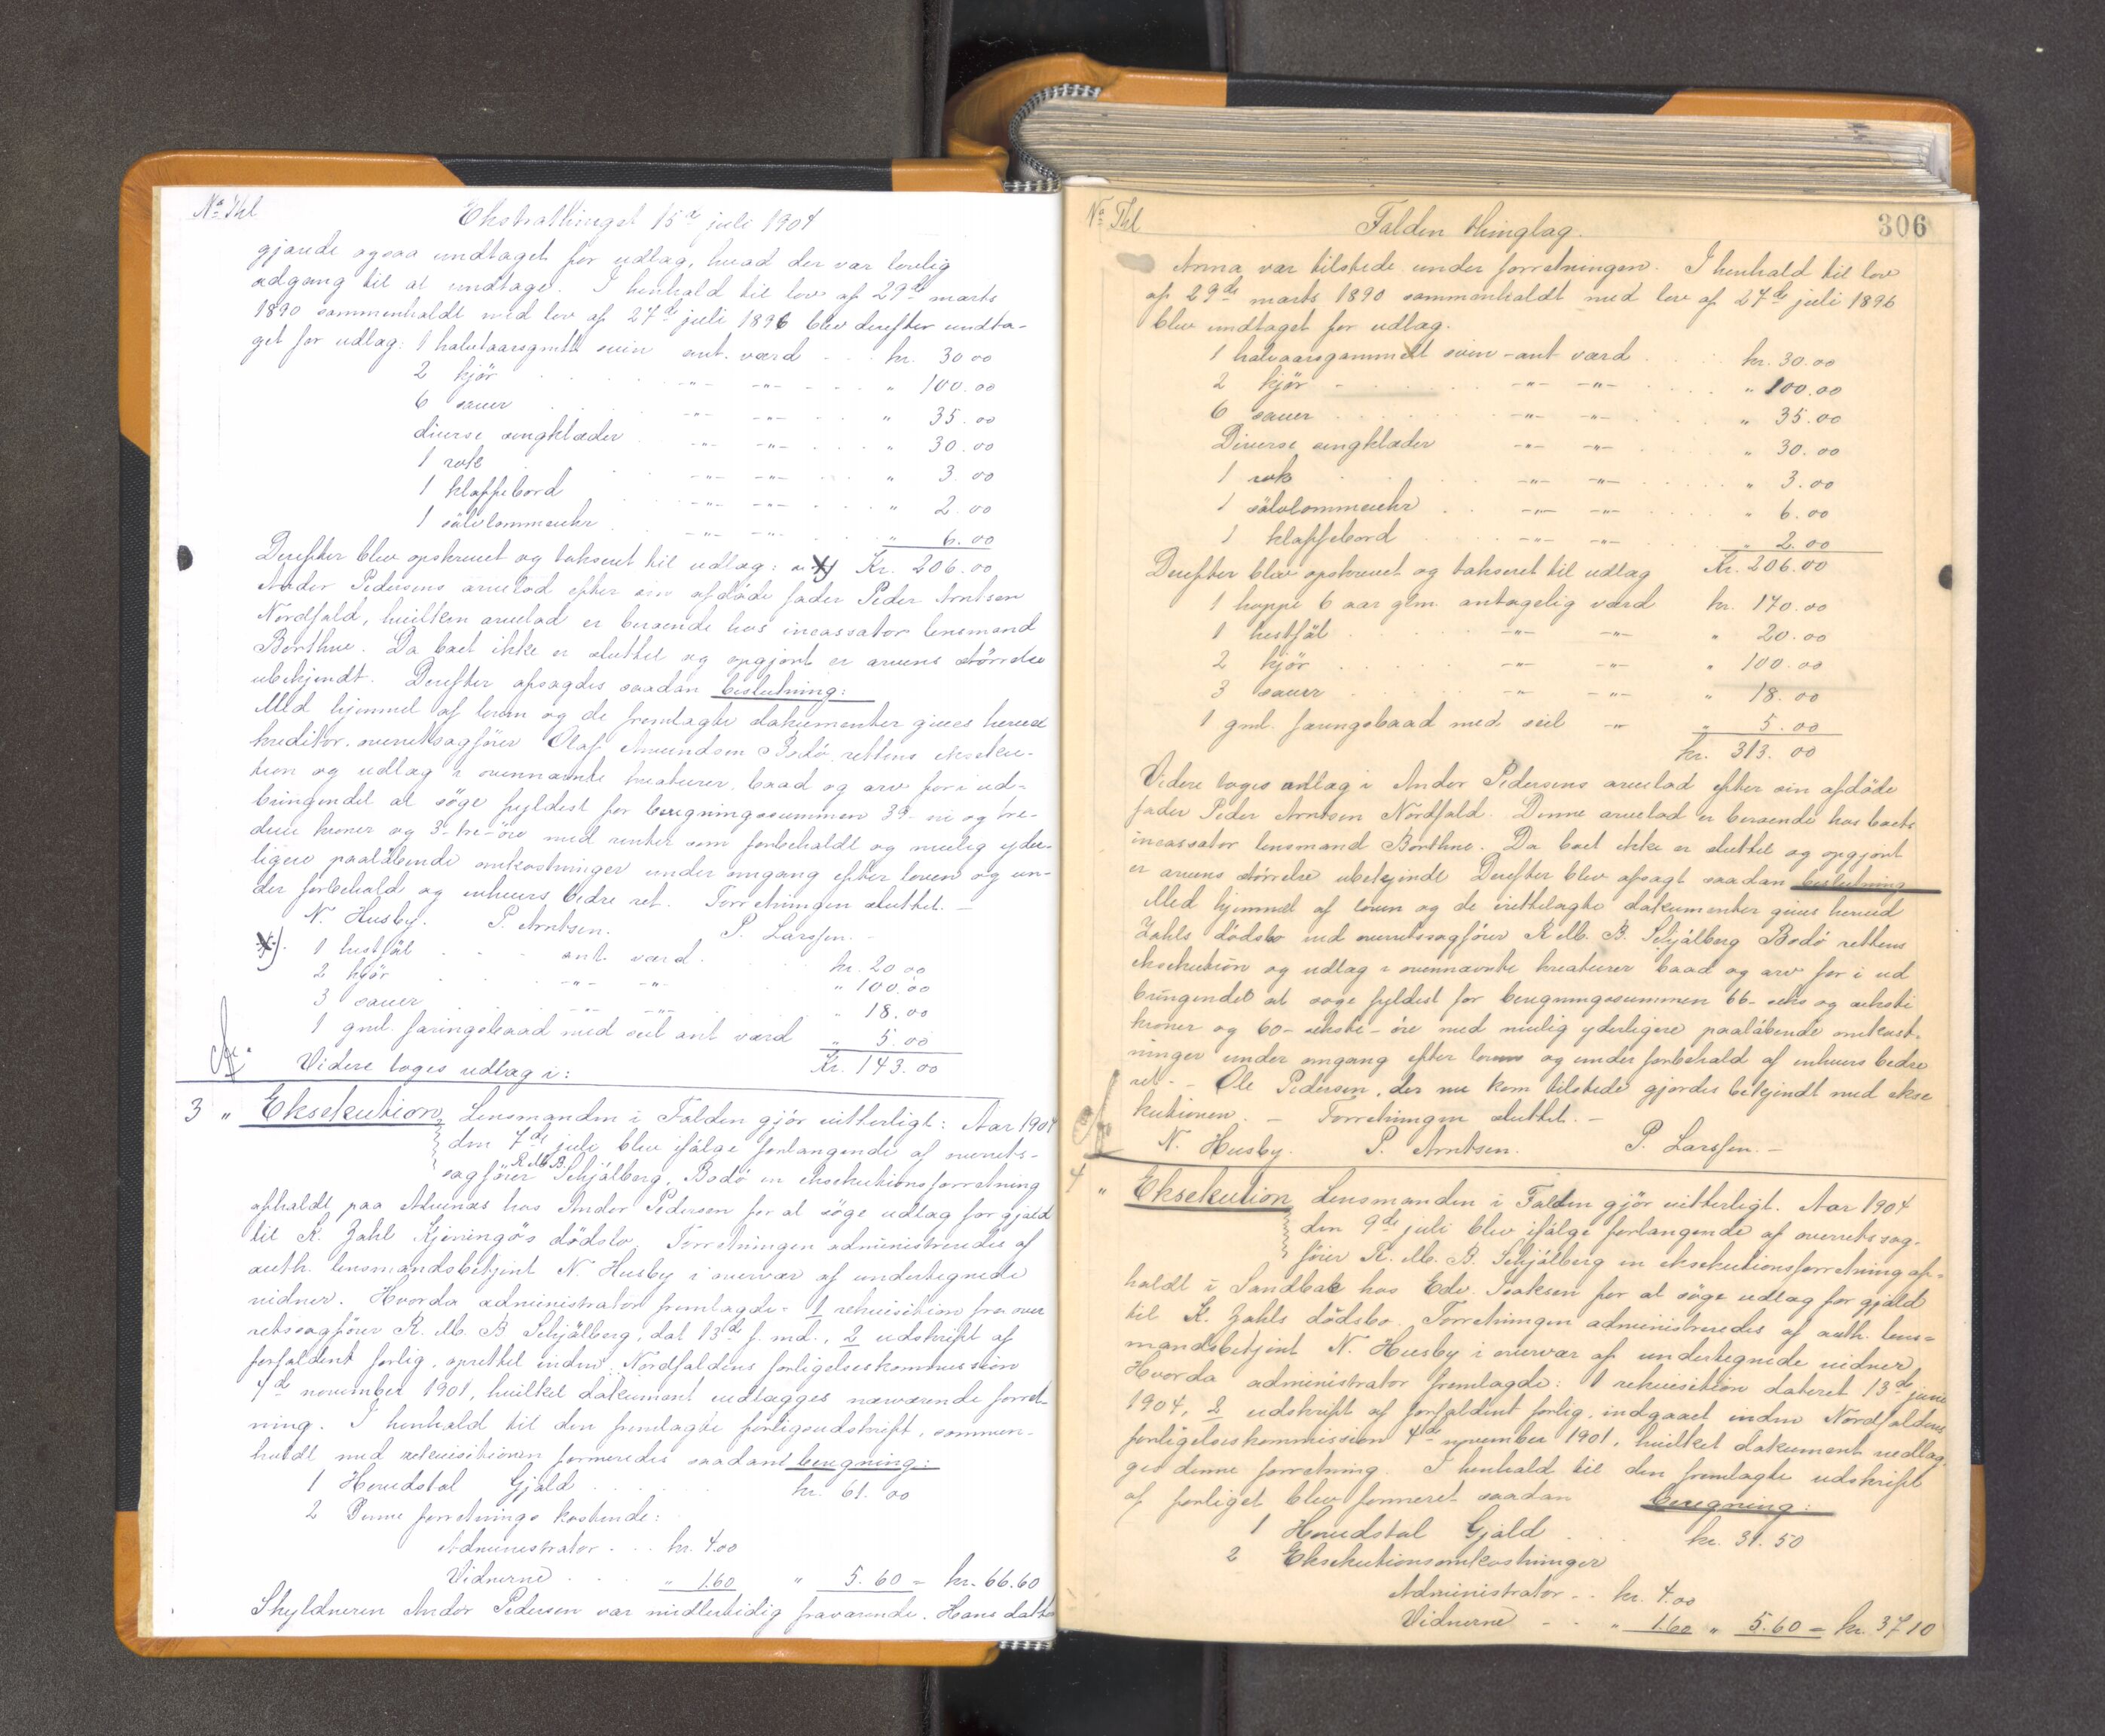 No. Thl
Ekstrathinget 15de juli 1904
gjorde ogsaa undtaget for udlæg, hvad der var lovlig
adgang til at undtage. I henhold til lov af 29de marts
1890 sammenholdt med lov af 27de juli 1896 blev derefter undta-
get for udlæg: 1 halvtaarsgmlt svin ant. værd - - . kr. 30.00
2 kjör -"- -"- " 100.00
6 sauer -"- -"- " 35.00
diverse sengklæder -"- -"- " 30.00
1 rok -"- -"- " 3.00
1 klaffebord -"- -"- " 2.00
1 sölvlommeuhr -"- -"- " 6.00
Derefter blev opskrevet og takseret til udlæg: x) Kr. 206.00
Andor Pedersens arvelod efter sin afdöde fader Peder Arntsen
Nordfold, hvilken arvelod er beroende hos incassator lensmand
Borthne. Da boet ikke er sluttet og opgjort er arvens störrelse
ubekjendt. Derefter afsagdes saadan beslutning:
Med hjemmel af loven og de fremlagte dokumenter gives herved
kreditor, overretssagförer Olaf Amundsen Bodö rettens ekseku-
tion og udlæg i ovennævnte kreaturer, baad og arv for i ud-
bringendet at söge fyldest for beregningssummen 39- ni og tre-
dive kroner og 3- tre- öre med renter som forbeholdt og mulig yder-
ligere paalöbende omkostninger under omgang efter loven og un-
der forbehold og enhvers bedre ret. Forretningen sluttet. -
N. Husby. P. Arntsen. P. Larssen. -
x). 1 hestföl . . . ant. værd . . kr. 20.00
2 kjör . . . -"- -"- " 100.00
3 sauer . . . -"- -"- " 18.00
1 gml. færingsbaad med seil ant værd " 5.00
Videre toges udlæg i: Kr. 143.00
3 " Eksekution, Lensmanden i Folden gjör vitterligt: Aar 1904
den 7de juli blev ifölge forlangende af overrets-
sagförer R. M. B. Schjölberg, Bodö en eksekutionsforretning
afholdt paa Alvenæs hos Andor Pedersen for at söge udlæg for gjæld
til K. Zahl Kjerringös dödsbo. Forretningen administreredes af
auth. lensmandsbetjent N. Husby i overvær af undertegnede
vidner. Hvorda administrator fremlagde: 1 rekvisition fra over
retssagförer R. M. B. Schjölberg, dat 13de f. md., 2 udskrift af
forfaldent forlig, oprettet inden Nordfoldens forligelseskommission
4de november 1901, hvilket dokument vedlægges nærværende forret-
ning. I henhold til den fremlagte forligsudskrift, sammen-
holdt med rekvisitionen formeredes saadant beregning:
1 Hovedstol Gjæld . . . kr. 61.00
2 Denne forretnings kostende:
Administrator . . . kr. 4.00
Vidnerne . . . " 1.60 " 5.60 = kr. 66.60
Skyldneren Andor Pedersen var midlertidig fraværende. Hans datter
No. Thl
Folden thinglag.
306
Anna var tilstede under forretningen. I henhold til lov
af 29de marts 1890 sammenholdt med lov af 27de juli 1896
blev undtaget for udlæg.
1 halvaarsgammelt svin - ant værd . . . kr. 30.00
2 kjör - -"- -"- " 100.00
6 sauer -"- -"- " 35.00
Diverse sengklæder -"- -"- " 30.00
1 rok -"- -"- " 3.00
1 sölvlommeuhr -"- -"- " 6.00
1 klaffebord -"- -"- " 2.00
Derefter blev opskrevet og takseret til udlæg Kr. 206.00
1 hoppe 6 aar glm. antagelig værd kr. 170.00
1 hestföl -"- -"- " 20.00
2 kjör -"- -"- " 100.00
3 sauer -"- -"- " 18.00
1 gml. færingsbaad med seil -"- " 5.00
kr. 313.00
Videre toges udlæg i Andor Pedersens arvelod efter sin afdöde
fader Peder Arntsen Nordfold. Denne arvelod er beroende hos boets
incassator lensmand Borthne. Da boet ikke er sluttet og opgjort
er arvens störrelse ubekjendt. Derefter blev afsagt saadan beslutning
Med hjemmel af loven og de irettelagte dokumenter gives herved
Zahls dödsbo ved overretssagförer R. M. B. Schjölberg Bodö rettens
eksekution og udlæg i ovennævnte kreaturer baad og arv for i ud
bringendet at söge fyldest for beregningssummen 66- seks og seksti
kroner og 60- seksti- öre med mulig yderligere paalöbende omkost-
ninger under omgang efter loven og under forbehold af enhvers bedre
ret. - Ole Pedersen, der nu kom tilstede gjordes bekjendt med ekse
kutionen. - Forretningen sluttet. -
N. Husby. P. Arntsen. P. Larssen. -
4 " Eksekution Lensmanden i Folden gjör vitterligt. Aar 1904
den 9de juli blev ifölge forlangende af overretssag-
förer R. M. B. Schjölberg en eksekutionsforretning af-
holdt i Sandbak hos Edv. Isaksen for at söge udlæg for gjæld
til K. Zahls dödsbo. Forretningen administreredes af auth. lens-
mandsbetjent N. Husby i overvær af undertegnede vidner
Hvorda administrator fremlagde: 1 rekvisition dateret 13de juni
1904, 2 udskrift af forfaldent forlig, indgaaet inden Nordfoldens
forligelseskommission 4de november 1901, hvilket dokument vedlæg-
ges denne forretning. I henhold til den fremlagte udskrift
af forliget blev formeret saadan beregning:
1 Hovedstol Gjæld . . . kr. 31.50
2 Eksekutionsomkostninger
Administrator . . kr. 4.00
Vidnerne - - " 1.60 " 5.60 = kr. 37.10